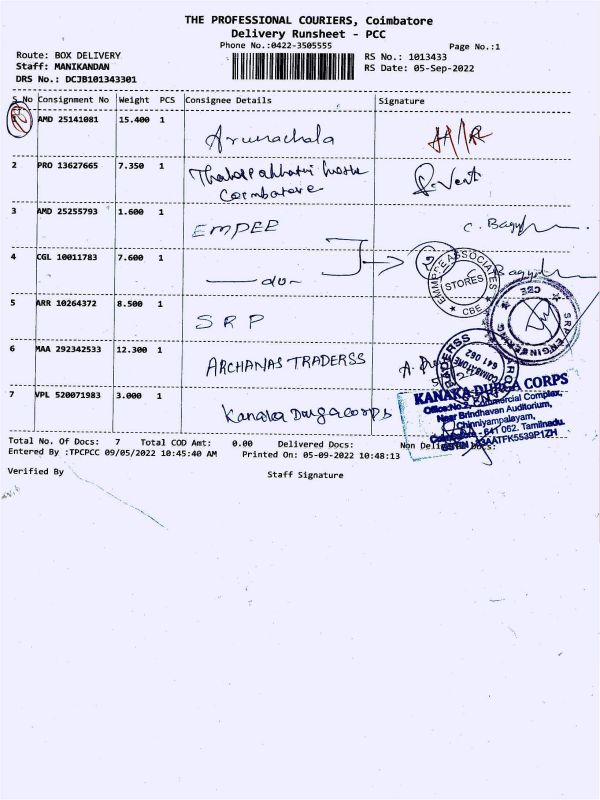 THE PROFESSIONAL COURIERS, Coimbatore
Delivery Runsheet - PCC
Phone No.:0422-3505555
Page No.:1
Route: BOX DELIVERY
Staff: MANIKANDAN
DRS No.: DCJB101343301
RS No.: 1013433
RS Date: 05-Sep-2022
S No Consignment No Weight PCS Consignee Details Signature
AMD 25141081 15.400 1 Arunachala
2 PRO 13627665 7.350 1
Coimbatore
3 AMD 25255793 1.600 1 EMPEE
4 CGL 10011783 7.600 1 -do- 2
EMMEE ASSOCIATES
STORES
★ CBE ★
5 ARR 10264372 8.500 1 SRP
SRP ENGINEERING
★ CBE ★
6 MAA 292342533 12.300 1 ARCHANAS TRADERSS
COIMBATORE
641 062
7 VPL 520071983 3.000 1 Kanaka Durga corps
KANAKA DURGA CORPS
Office:No.2, Commercial Complex,
Near Brindhavan Auditorium,
Chinniyampalayam,
Coimbatore - 641 062. Tamilnadu.
GSTIN : 33AATFK5539P1ZH
Total No. Of Docs: 7 Total COD Amt: 0.00 Delivered Docs: Non Delivered Docs:
Entered By :TPCPCC 09/05/2022 10:45:40 AM Printed On: 05-09-2022 10:48:13
Verified By
Staff Signature